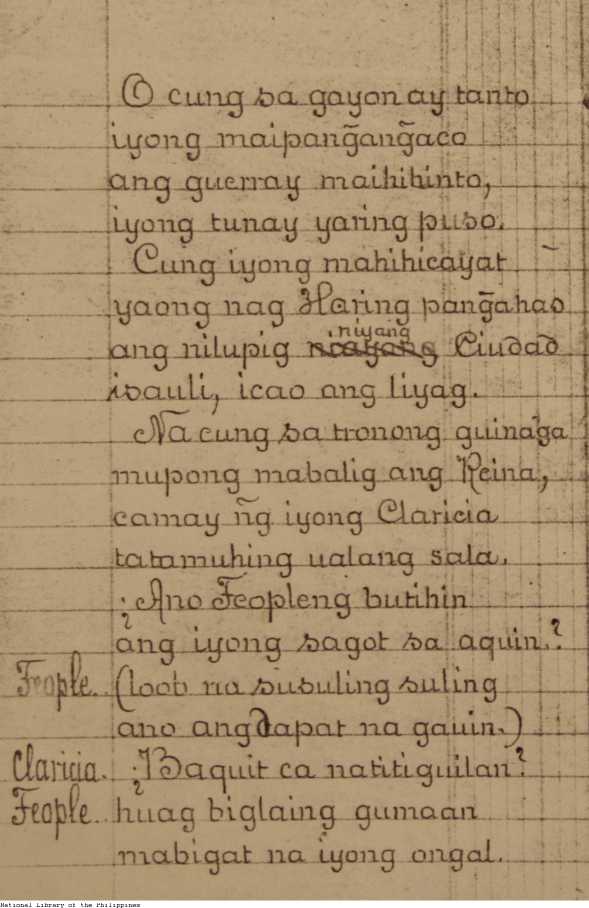 O cung sa gayon ay tanto
iyong maipang̃ang̃aco
ang guerray maihihinto,
iyong tunay yaring puso.
Cung iyong mahihicayat
yaong nag Haring pang̃ahas
niyang
ang nilupig Ciudad
isauli, icao ang liyag.
Na cung sa tronong guinaga
mupong mabalig ang Reina,
camay n͠g iyong Claricia
tatamuhing ualang sala.
¿Ano Feopleng butihin
ang iyong sagot sa aquin.?
Feople. (loob na susuling suling
ano ang dapat na gauin.)
Claricia. ¿Baquit ca natitiguilan?
Feople. huag biglaing gumaan
mabigat na iyong ongal.
National Library of the Philippines